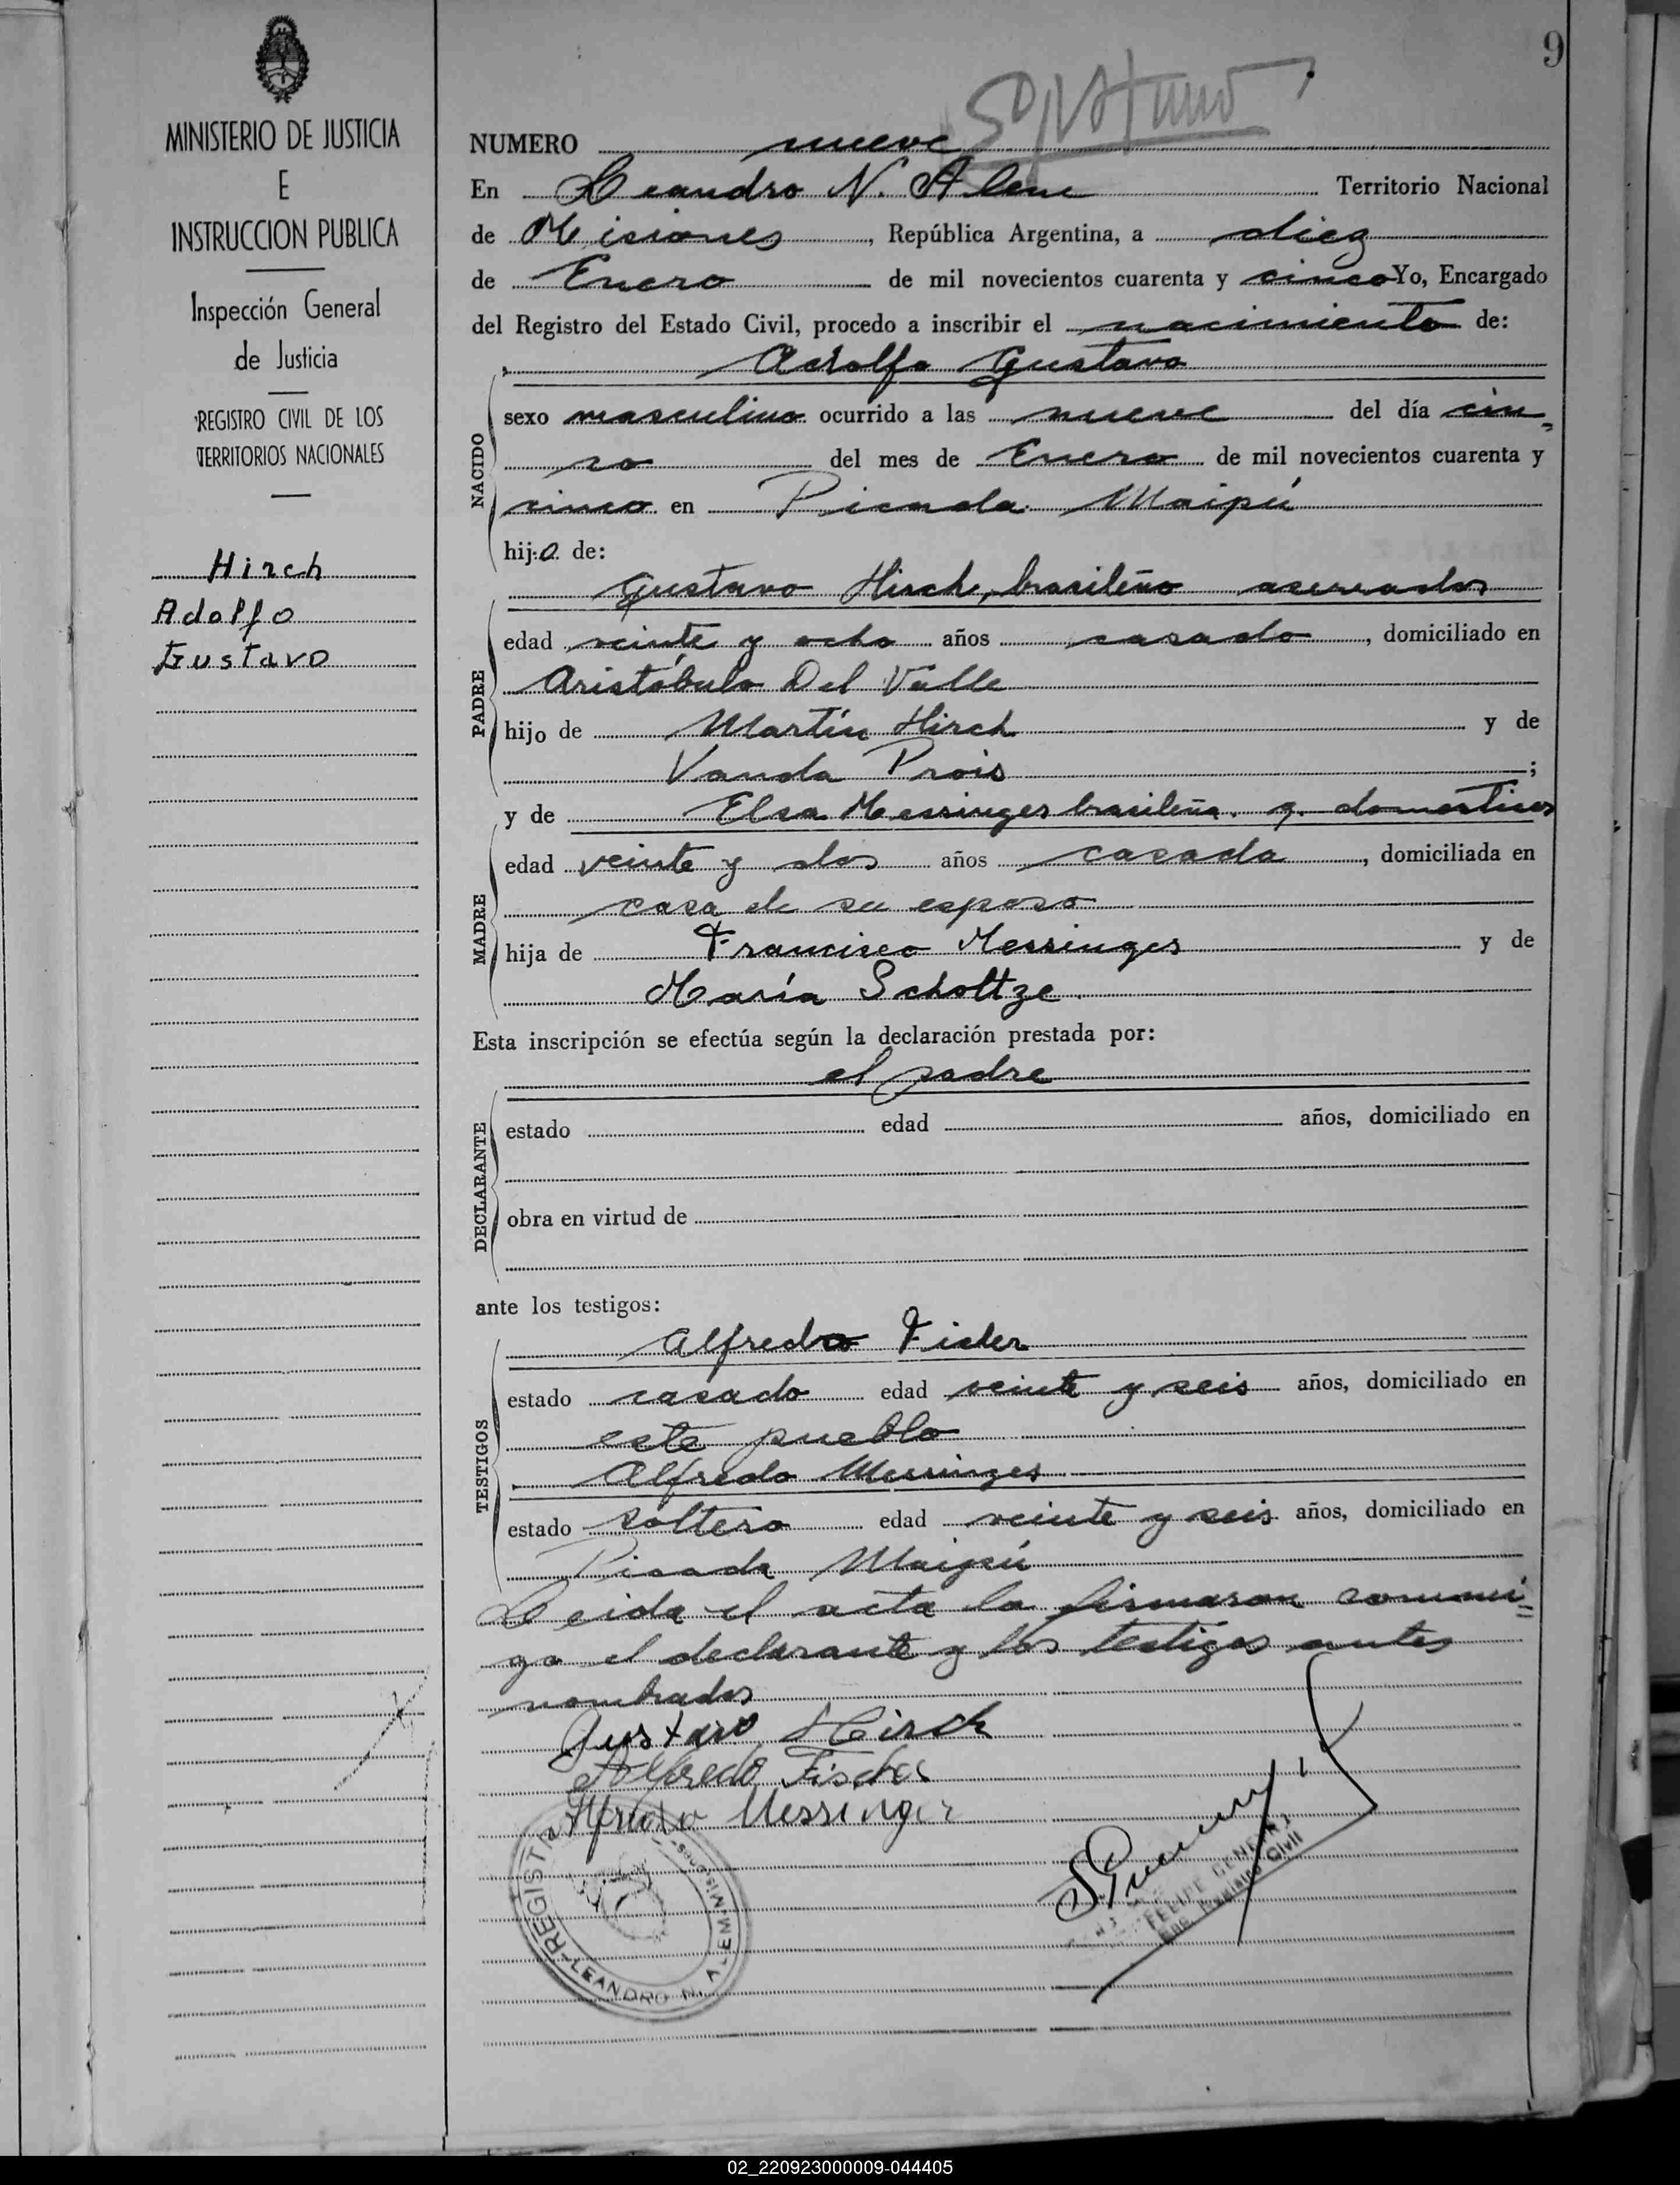 9
MINISTERIO DE JUSTICIA
E
INSTRUCCION PUBLICA
Inspección General
de Justicia
REGISTRO CIVIL DE LOS
TERRITORIOS NACIONALES
Hirch
Adolfo
Gustavo
NUMERO nueve
En Leandro N. Alem Territorio Nacional
de Misiones, República Argentina, a diez
de Enero de mil novecientos cuarenta y cinco Yo, Encargado
del Registro del Estado Civil, procedo a inscribir el nacimiento de:
Adolfo Gustavo
NACIDO
sexo masculino ocurrido a las nueve del día cin-
co del mes de Enero de mil novecientos cuarenta y
cinco en Picada Maipú
hijo de:
Gustavo Hirch, brasileño aserrador
PADRE
edad veinte y ocho años casado, domiciliado en
Aristóbulo Del Valle
hijo de Martín Hirch y de
Vanda Prois;
y de Elsa Messinger brasileña. q. domesticos
MADRE
edad veinte y dos años casada, domiciliada en
casa de su esposo
hija de Francisco Messinger y de
María Scholtze
Esta inscripción se efectúa según la declaración prestada por:
el padre
DECLARANTE
estado edad años, domiciliado en
obra en virtud de
ante los testigos:
Alfredo Fisler
TESTIGOS
estado casado edad veinte y seis años, domiciliado en
este pueblo
Alfredo Messinger
estado soltero edad veinte y seis años, domiciliado en
Picada Maipú
Leida el acta la firmaron conmi=
go el declarante y los testigos antes
nombrados
Gustavo Hirch
Alfredo Fischer
Alfredo Messinger
REGIST
LEANDRO N. ALEM MISIONES
FELIPE
Enc. Registro Civil
02_220923000009-044405